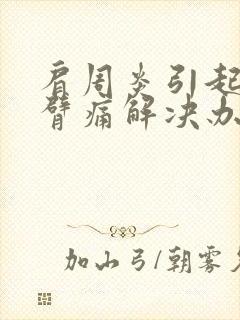 肩周炎引起
臂痛解决办
加山弓/朝雾